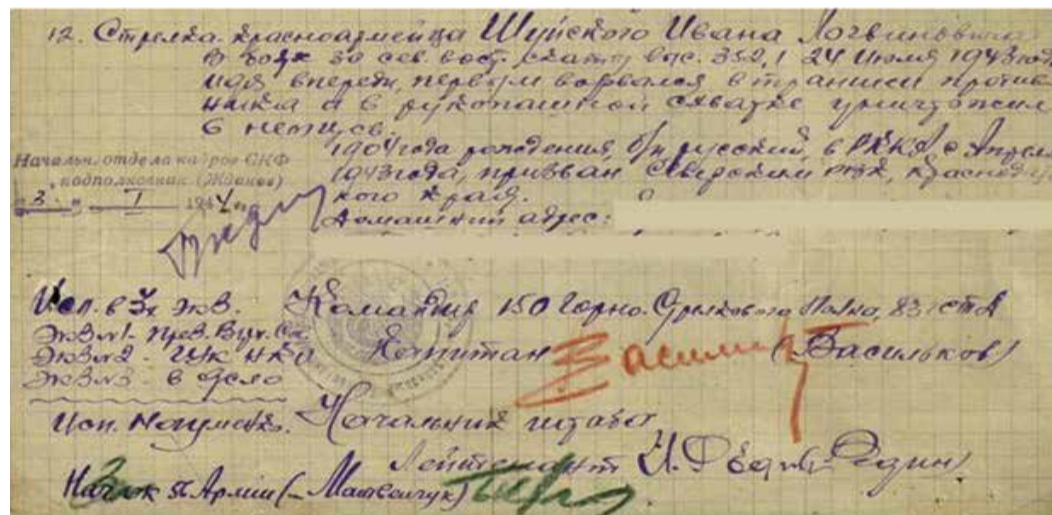 12. Стрелка красноармейца Шуйского Ивана Логвиновича
В боях за сев. вост. скаты выс. 352,1 24 июля 1943 года
идя впереди, первым ворвался в траншеи против-
ника и в рукопашной схватке уничтожил
6 немцев.
1904 года рождения, б/п русский, в РККА с Апреля
1943 года, призван Северским РВК, Краснодарс-
кого края.
Домашний адрес:
Начальн. отдела кадров СКФ
подполковник (Жданов)
"3" 194
Исп. в 3х экз.
Экз №1 - През. Верх. Сов
Экз №2 - ЦУК НКО
Экз №3 - в дело
Исп. Науменко.
Командир 150 Горно. Стрелкового Полка, 83 ГСД
Капитан (Васильков)
Начальник штаба
Лейтенант (Редин)